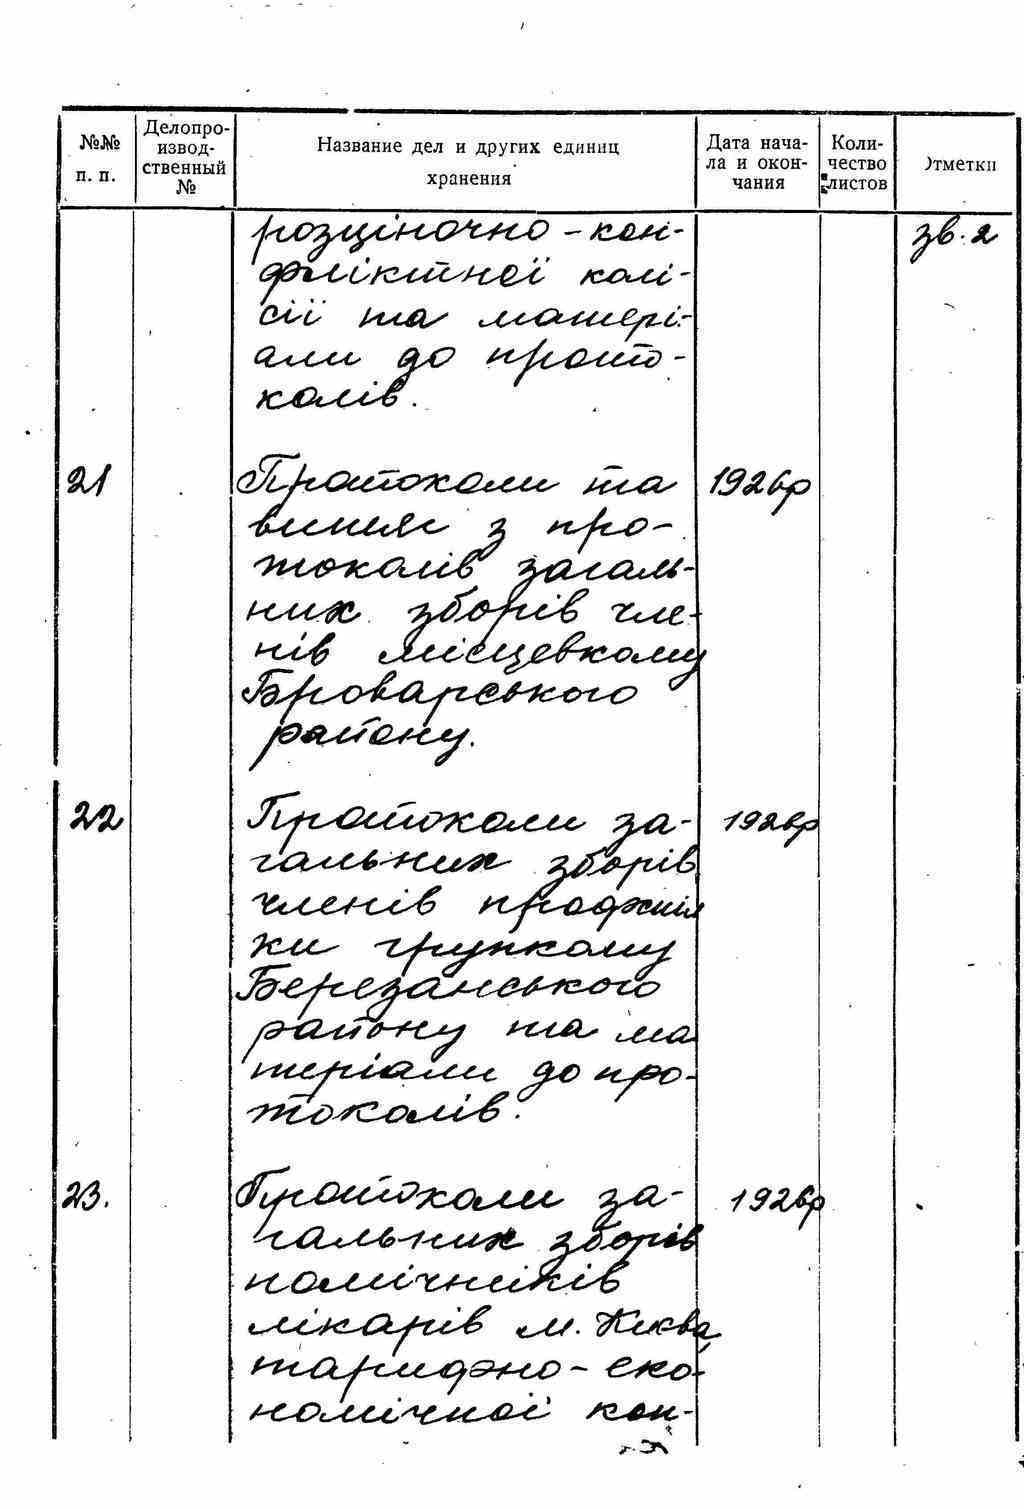 №№ п. п.
Делопро-
извод-
ственный
№
Название дел и других единиц
хранения
Дата нача-
ла и окон-
чания
Коли-
чество
листов
Отметки
розціночно-кон-
фліктної комі-
сії та матері-
али до прото-
колів.
зв. 2
21
Протоколи та
1926р
витяги з про-
токолів загаль-
них зборів чле-
нів місцевкому
Броварського
району.
22
Протоколи за-
1926р
гальних зборів
членів профспіл
ки групкому
Березанського
району та ма
теріали до про-
токолів.
23.
Протоколи за-
1926р
гальних зборів
помічників
лікарів м. Києва,
тарифно-еко-
номічної кон-